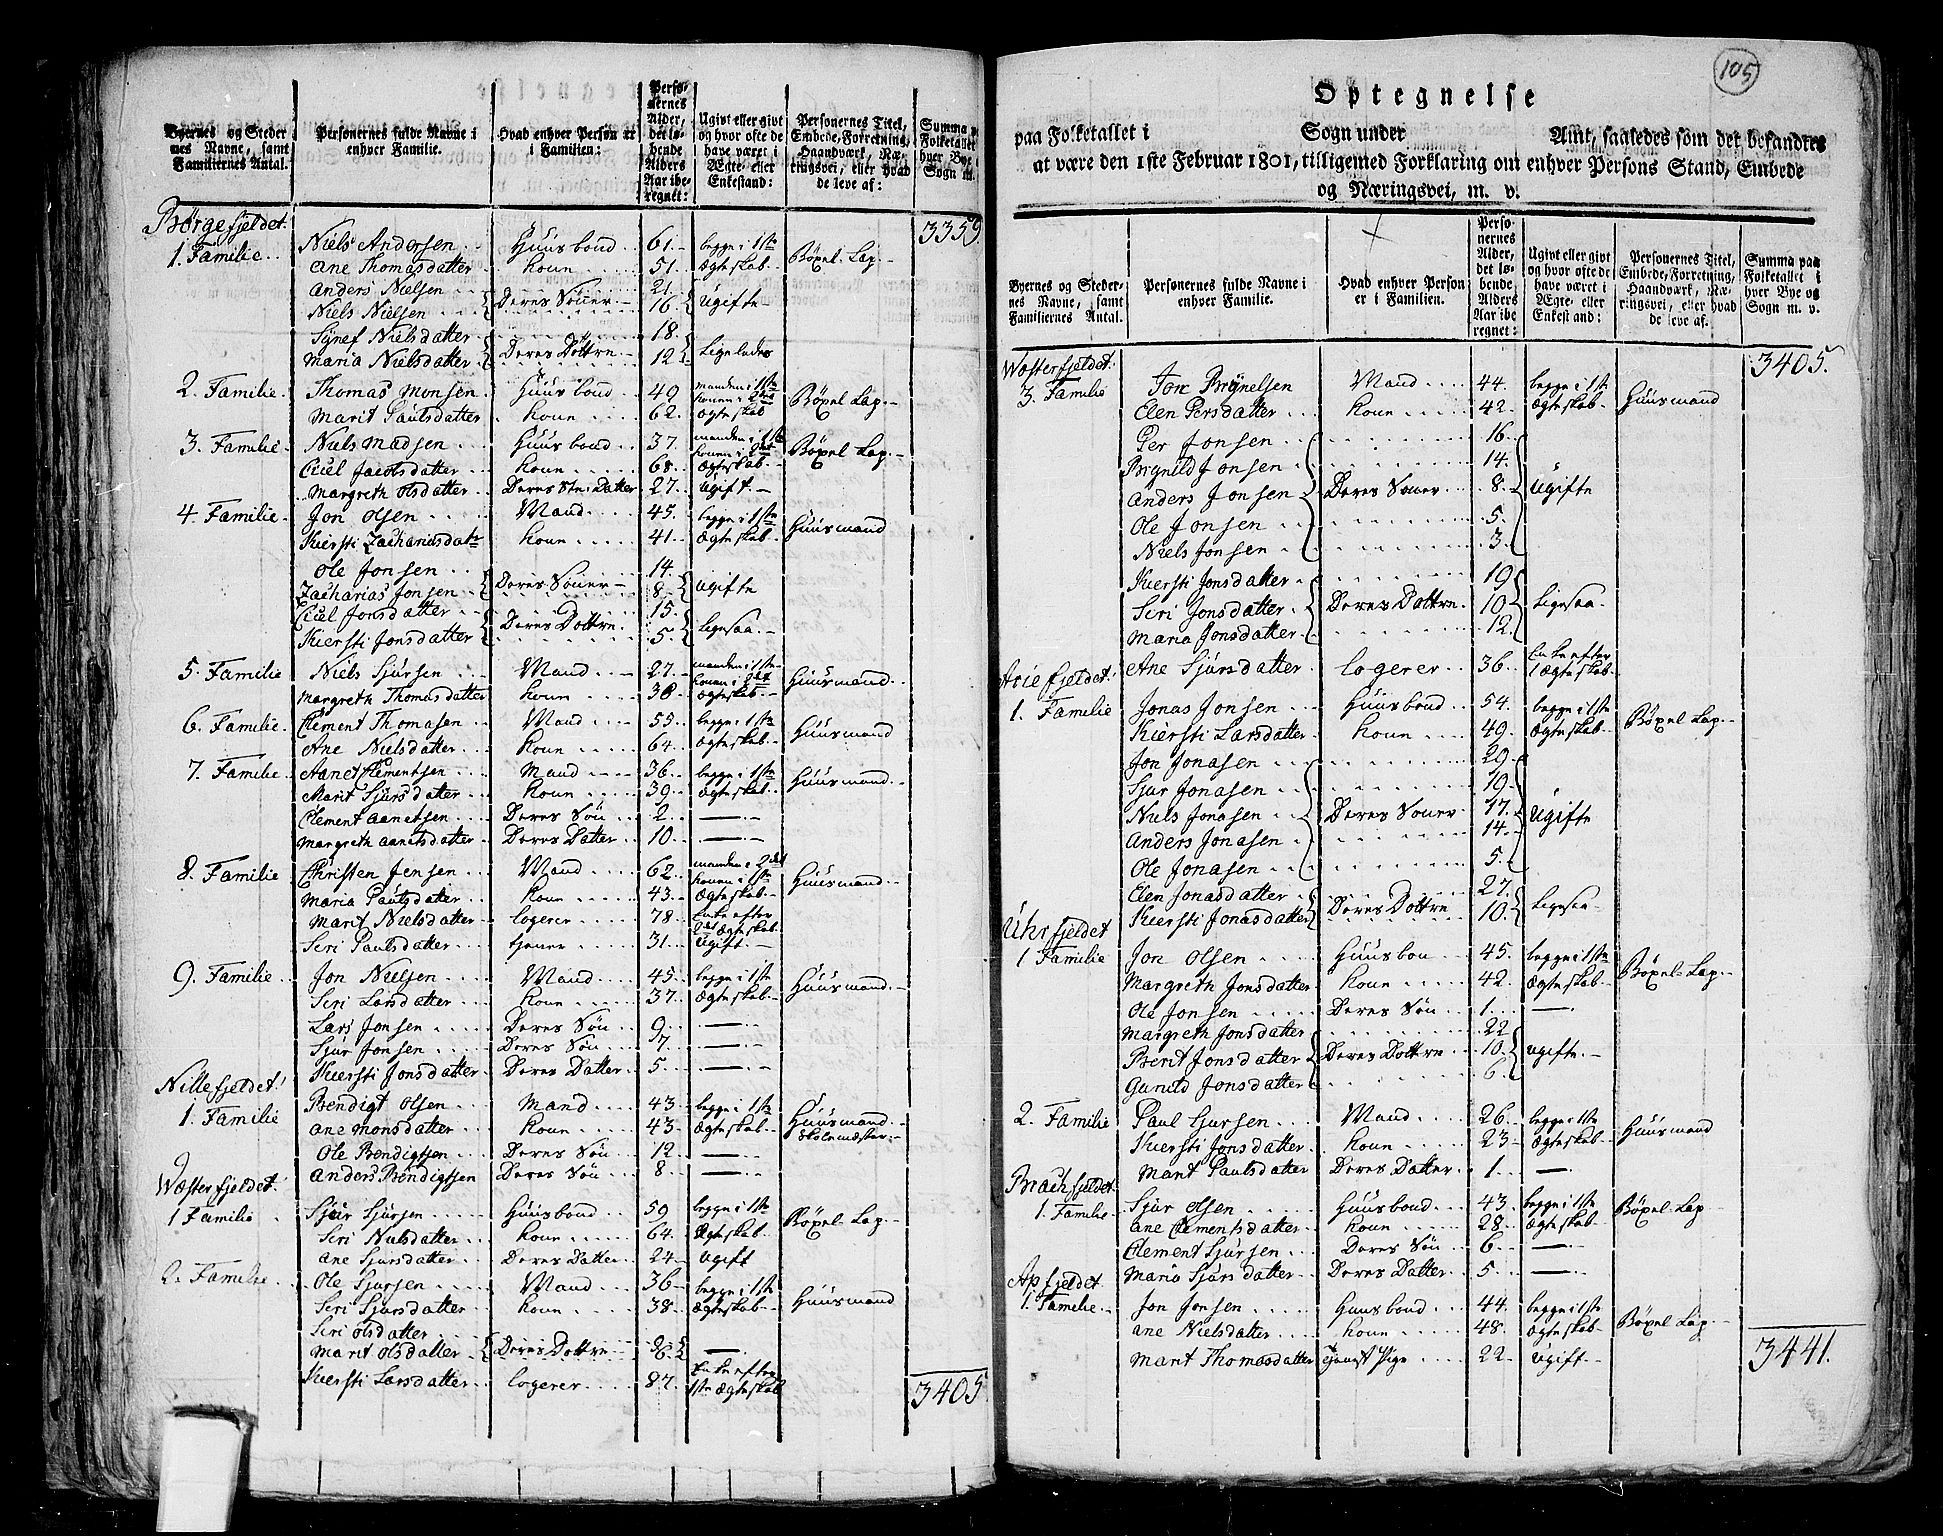 Byernes og Steder nes Navne, samt Familiernes Antal.
Personernes fulde Navne i enhver Familie.
Hvad enhver Person er i Familien:
Personernes Alder, det løbende Alders Aar iberegnet:
Ugivt eller givt og hvor ofte de have været i Ægte- eller Enkestand:
Personernes Titel, Embede, Forretning, Haandværk, Næringsvei, eller hvad de leve af:
Summa paa Folketallet i hver Bye og Sogn m. v.
Børgefjeldet. 3359
1. Familie Niels Andersen Huusbond 61. begge i 1ste Bøxel Lap
Ane Thomasdatter kone 51. Ægteskab
Anders Nielsen 21.
Niels Nielsen Deres Sønner 16 Ugifte
Synef Nielsdatter 18.
Maria Nielsdatter Deres Dottre 12 Ligeledes
2. Familie Thomas Monsen Huusbond 49 manden i 1ste konen i 2det Bøxel Lap
Marit Paulsdatter kone 62. Ægteskab
3. Familie Niels Madsen Huusbond 37. manden i 1ste konen i 2det Bøxel Lap
Ciul Jacobsdatter kone 68. Ægteskab
Margreth Olsdatter Deres Ste: Datter 27. Ugift
4. Familie Jon Olsen Mand 45. begge i 1ste Huusmand
Kiersti Zachariasdatr kone 41. Ægteskab
Ole Jonsen 14.
Zacharias Jonsen Deres Sønner 8. Ugifte
Ciul Jonsdatter 15.
Kiersti Jonsdatter Deres Dottre 5. Ligesaa
5. Familie Niels Sjursen Mand 27. manden i 1ste konen i 2det Huusmand
Margreth Thomasdatter kone 38 Ægteskab
6. Familie Clement Thomasen Mand 55. begge i 1ste Huusmand
Ane Nielsdatter kone 64. Ægteskab
7. Familie Aanet Clementsen Mand 36. begge i 1ste Huusmand
Marit Sjursdatter kone 39. Ægteskab
Clement Aanetsen Deres Søn 2. —
Margreth Aanetsdatter Deres Datter 10 —
8. Familie Christen Jensen Mand 62. manden i 2det konen i 1ste Huusmand
Maria Paulsdatter kone 43. Ægteskab
Marit Nielsdatter logerer 78. Enke efter 2det Ægteskab
Seri Paulsdatter tjener 31. Ugift
9. Familie Jon Nielsen Mand 45. begge i 1ste Huusmand
Seri Larsdatter kone 37. Ægteskab
Lars Jonsen Deres Søn 9. —
Sjur Jonsen Deres Søn 7. —
Kiersti Jonsdatter Deres Datter 5. —
Nillefjeldet.
1. Familie Bendigt Olsen Mand 43. begge i 1ste Huusmand
Ane Monsdatter kone 43. Ægteskab Skolemæster
Ole Bendigtsen Deres Søn 12 —
Anders Bendigtsen Deres Søn 8. —
Wæsterfjeldet.
1 Familie Sjur Sjursen Huusbond 59 begge i 1ste Bøxel Lap
Seri Nielsdatter kone 64. Ægteskab
Ane Sjursdatter Deres Datter 24. Ugift
2. Familie Ole Sjursen Mand 36 begge i 1ste Huusmand
Seri Sjursdatter kone 38. Ægteskab
Seri Olsdatter
Marit Olsdatter Deres Dottre —
Kiersti Larsdatter logerer 87. Enke efter 1ste Ægteskab 3405
105
Optegnelse
paa Folketallet i Sogn under Amt, saaledes som det befandtes
at være den 1ste Februar 1801, tilligemed Forklaring om enhver Persons Stand, Embede
og Næringsvei, m. v.
Byernes og Stedernes Navne, samt Familiernes Antal.
Personernes fulde Navne i enhver Familie.
Hvad enhver Person er i Familien.
Personernes Alder, det løbende Alders Aar iberegnet:
Ugivt eller givt og hvor ofte de have været i Ægte- eller Enkestand:
Personernes Titel, Embede, Forretning, Haandværk, Næringsvei, eller hvad de leve af.
Summa paa Folketallet i hver Bye og Sogn m. v.
Wæsterfjeldet. 3405.
3. Familie Jon Brynelsen Mand 44. begge i 1ste Huusmand
Elen Persdatter kone 42. Ægteskab
Per Jonsen 16
Brynild Jonsen 14.
Anders Jonsen Deres Sønner 8. Ugifte
Ole Jonsen 5.
Niels Jonsen 3.
Kiersti Jonsdatter 19
Seri Jonsdatter Deres Dottre 10 Ligesaa
Maria Jonsdatter 12.
Ane Sjursdatter logerer 36. Enke efter 1 Ægteskab
1. Familie Jonas Jonsen Huusbond 54. begge i 1ste Bøxel Lap
Kiersti Larsdatter kone 49. Ægteskab
Jon Jonasen 29
Sjur Jonasen 19
Niels Jonasen Deres Sønner 17. Ugifte
Anders Jonasen 14.
Ole Jonasen 5.
Elen Jonasdatter 27.
Kiersti Jonasdatter Deres Dottre 10. Ligesaa
Uhrfjeldet
1 Familie Jon Olsen Huusbon 45. begge i 1ste Bøxel Lap
Margreth Jonsdatter kone 42. Ægteskab
Ole Jonsen Deres Søn 1. —
Margreth Jonsdatter 22
Berit Jonsdatter Deres Dottre 10. ugifte
Gunild Jonsdatter 6.
2. Familie Paul Sjursen Mand 26. begge i 1ste Huusmand
Kiersti Jonsdatter kone 23 Ægteskab
Marit Paulsdatter Deres Datter 1. —
Brachfjeldet.
1. Familie Sjur Olsen Huusbond 43. begge i 1ste Bøxel Lap
Ane Clementsdatter kone 28. Ægteskab
Clement Sjursen Deres Søn 6. —
Maria Sjursdatter Deres Datter 5. —
Apfjeldet.
1. Familie Jon Jonsen Huusbond 44. begge i 1ste Bøxel Lap
Ane Nielsdatter kone 48. Ægteskab
Marit Thomasdatter Tjenst Pige 22. Ugift 3441.